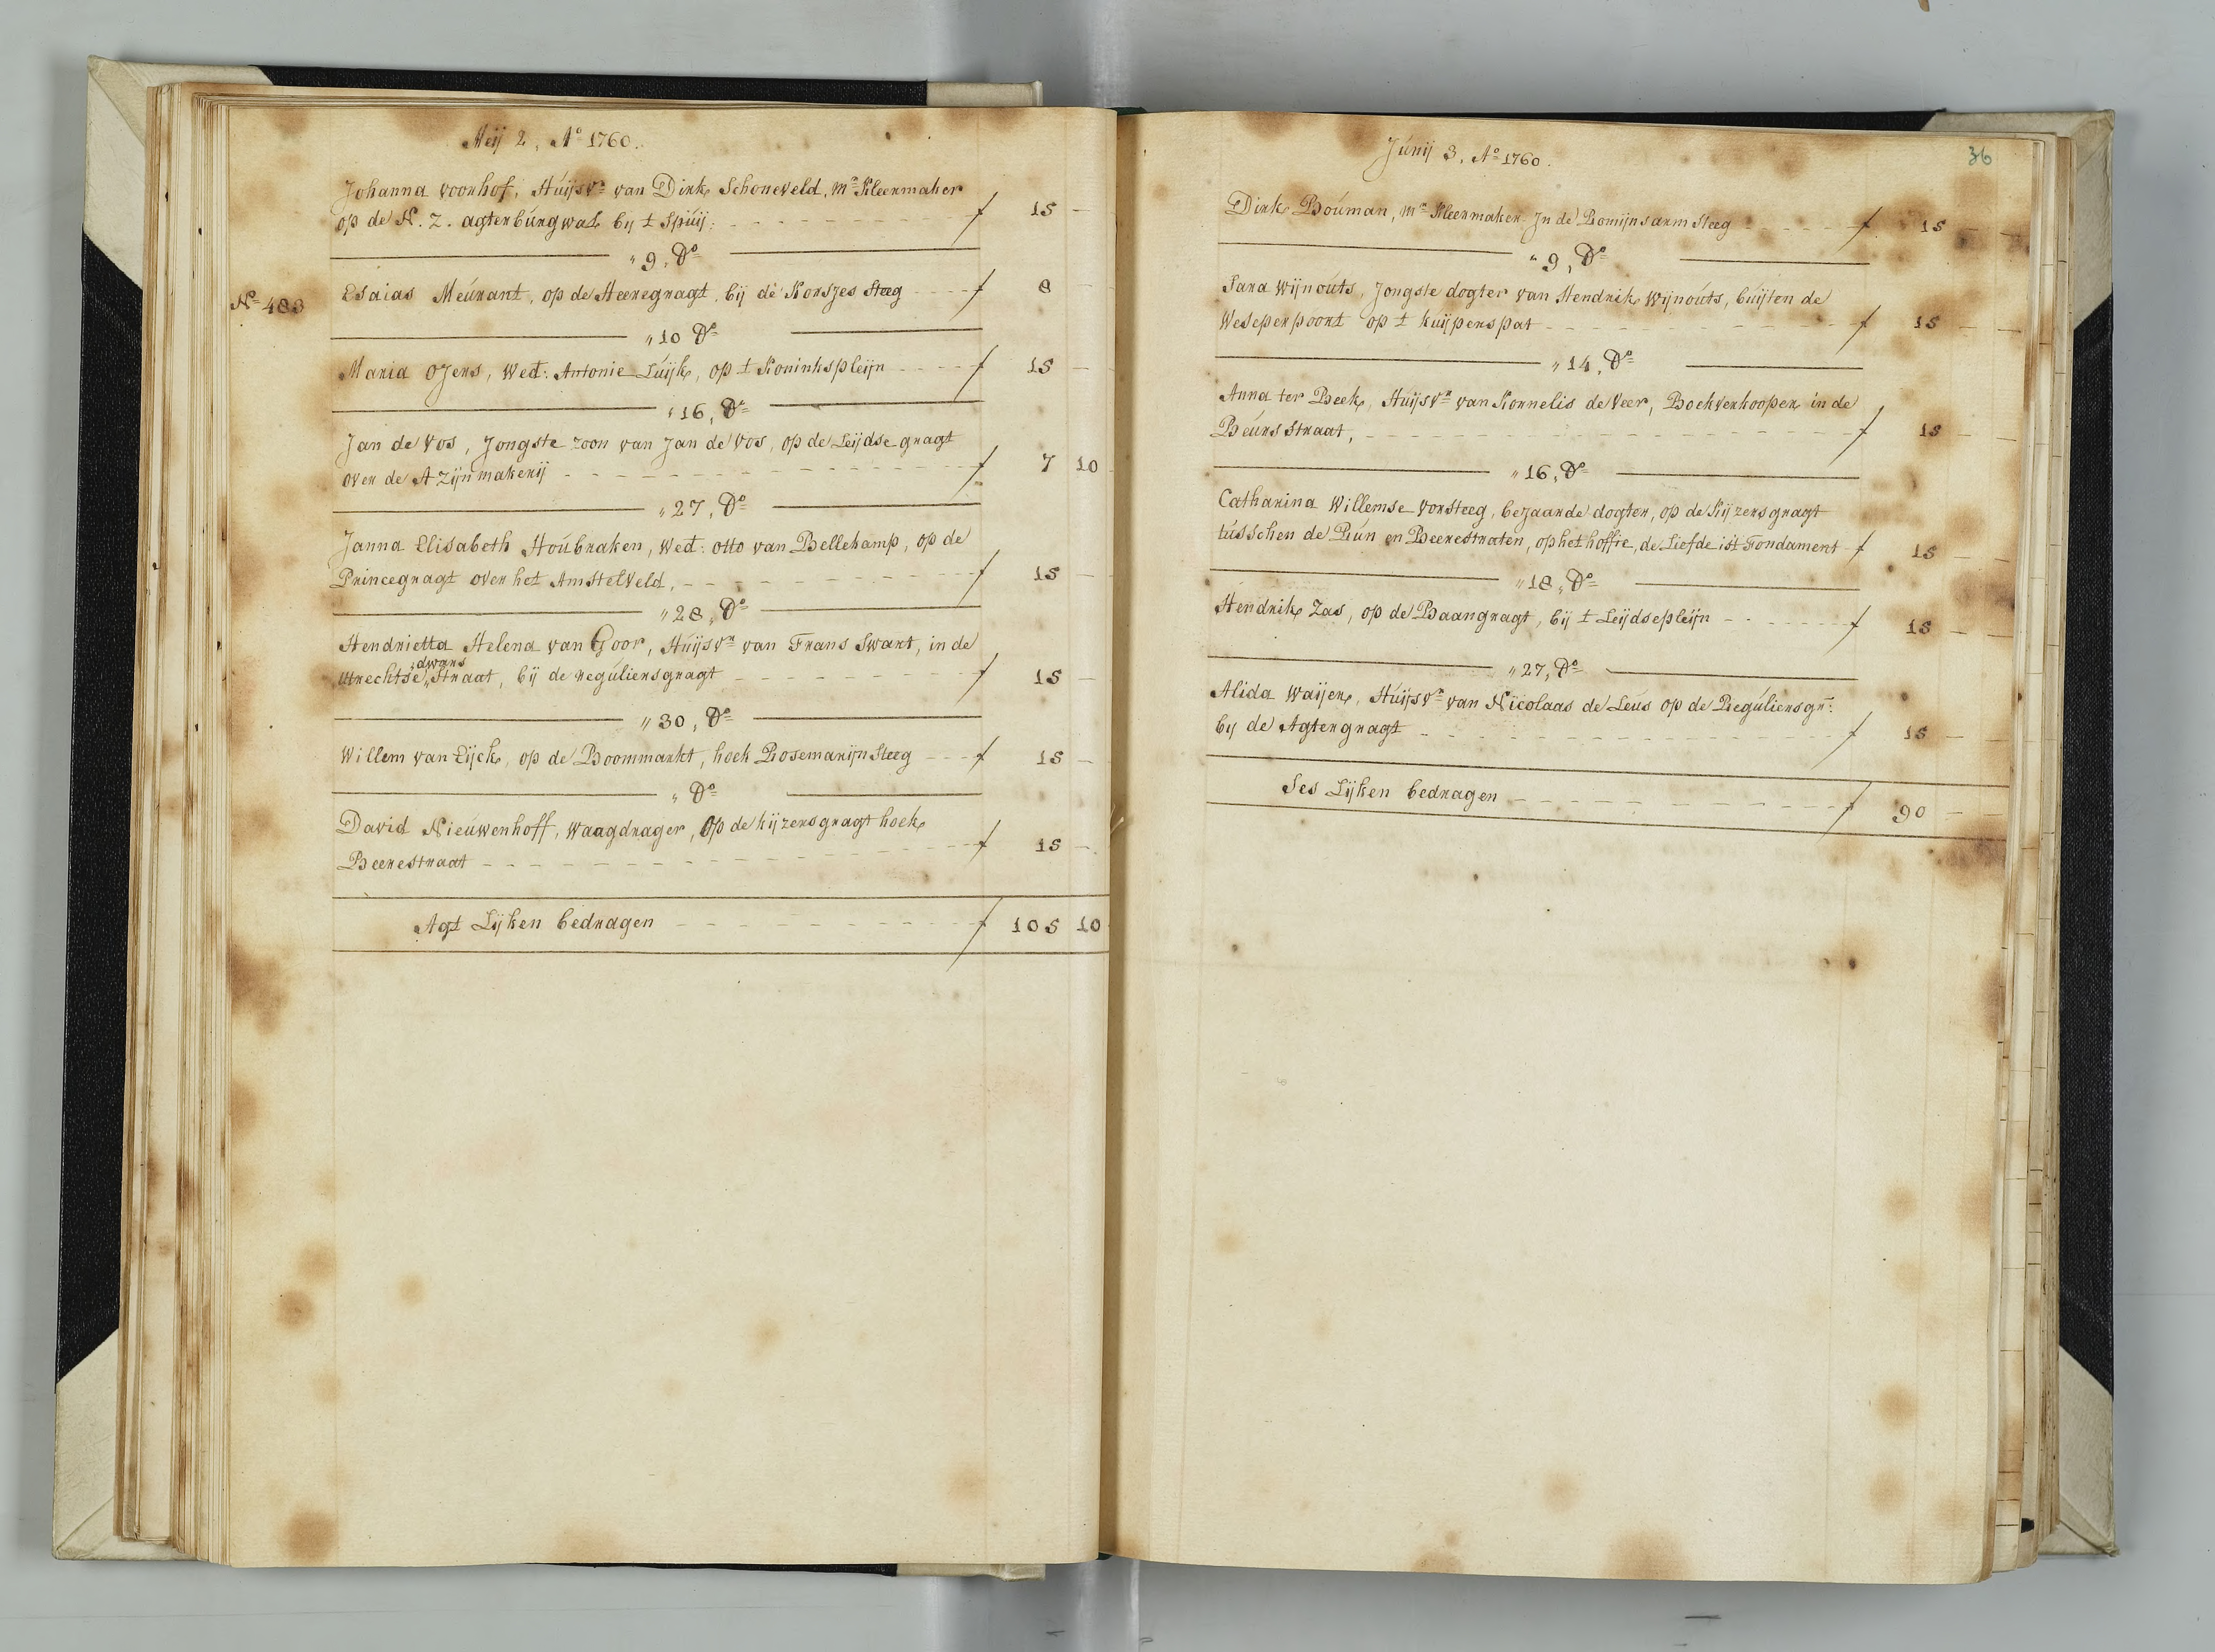 Meij 2, Aº 1760.
Johanna voorhof, Huijsvr van Dirk Schoneveld, mr Kleermaker
op de N. Z. agterburgwal bij t Spuij: f 15 -
" 9, Do
Nº 483 Esaias Meurant, op de Heeregragt, bij de Korsjes Steeg f 8 -
" 10 Do
Maria Ojers, Wed: Antonie Luijk, op t Koninkspleijn f 15 -
" 16, Do
Jan de Vos, Jongste zoon van Jan de Vos, op de Leijdse gragt
over de Azijnmakerij f 7 10
" 27, Do
Janna Elisabeth Houbraken, Wed: Otto van Bellekamp, op de
Princegragt over het Amstelveld, f 15 -
" 28, Do
Hendrietta Helena van Goor, Huijsvr van Frans Swart, in de
dwars
Utrechtse Straat, bij de reguliersgragt f 15 -
" 30, Do
Willem van Eijck, op de Boommarkt, hoek Rosemarijn Steeg f 15 -
" Do
David Nieuwenhoff, Waagdrager, Op de kijzersgragt hoek
Beerestraat f 15 -
Agt Lijken bedragen f 105 10
36
Junij 3, Aº 1760.
Dirk Bouman, mr Kleermaker In de Romijnsarm Steeg f 15 -
" 9, Do
Sara Wijnouts, Jongste dogter van Hendrik Wijnouts, buijten de
Weseperpoort op t kuijperspat f 15 -
" 14, Do
Anna ter Beek, Huijsvr van Kornelis de Veer, Boekverkooper in de
Beurs Straat, f 15 -
" 16, Do
Catharina Willemse Vorsteeg, bejaarde dogter, op de Kijzersgragt
tusschen de Run en Beerestraten, op het hoffie, de Liefde ist Fondament f 15 -
" 18, Do
Hendrik Zas, op de Baangragt, bij t Leijdsepleijn f 15 -
" 27, Do
Alida Waijer, Huijsvr van Nicolaas de Leus op de Reguliersgr:
bij de Agtergragt f 15 -
Ses Lijken bedragen f 90 -